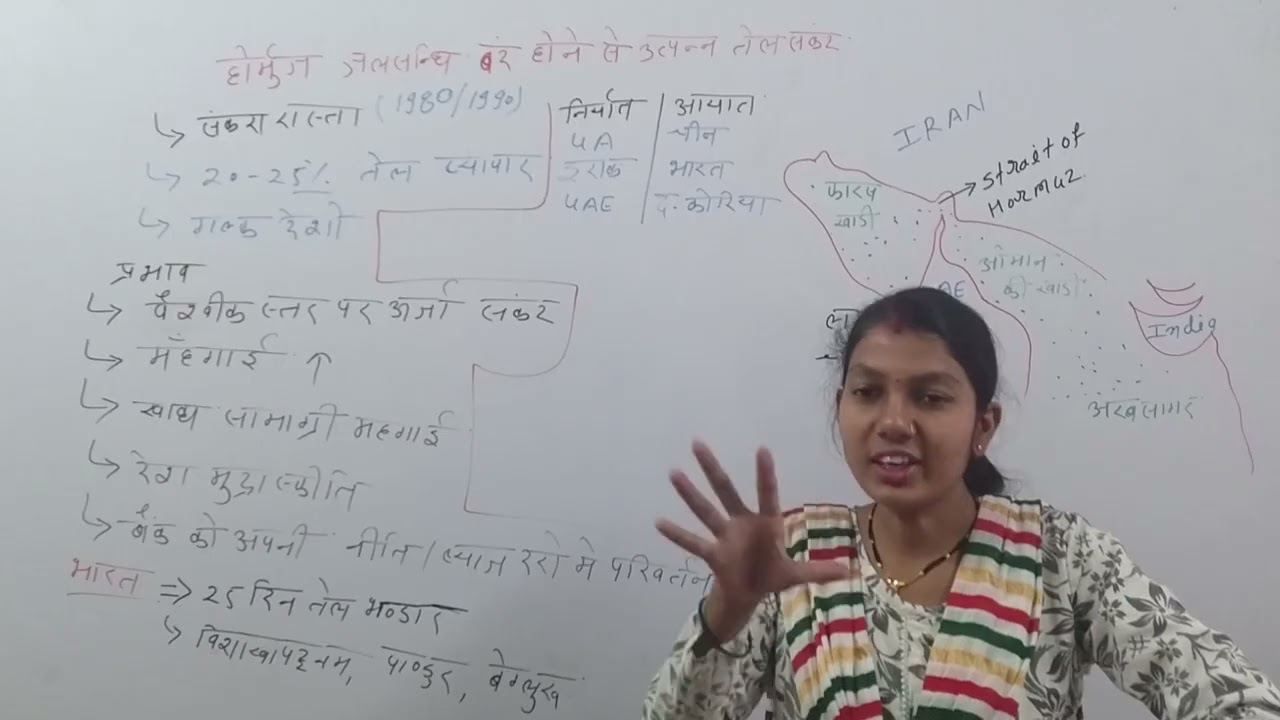 होर्मुज जलसन्धि बंद होने से उत्पन्न तेल संकट
↳ संकरा रास्ता (1980/1990)
↳ 20-25% तेल व्यापार
↳ गल्फ देशो
निर्यात | आयात
UA | चीन
इराक | भारत
UAE | द. कोरिया
प्रभाव
↳ वैश्वीक स्तर पर ऊर्जा संकट
↳ मँहगाई ↑
↳ खाद्य सामाग्री महगाई
↳ रेश मुद्रास्फीति
↳ बैंक को अपनी नीति / ब्याज दरो मे परिवर्तन
भारत ⇒ 25 दिन तेल भण्डार
↳ विशाखापट्नम, पाण्डुर, बेंग्लुरू
IRAN
Strait of
Hormuz.
फारस
खाडी
ओमान
की खाडी
AE
India
अरब सागर